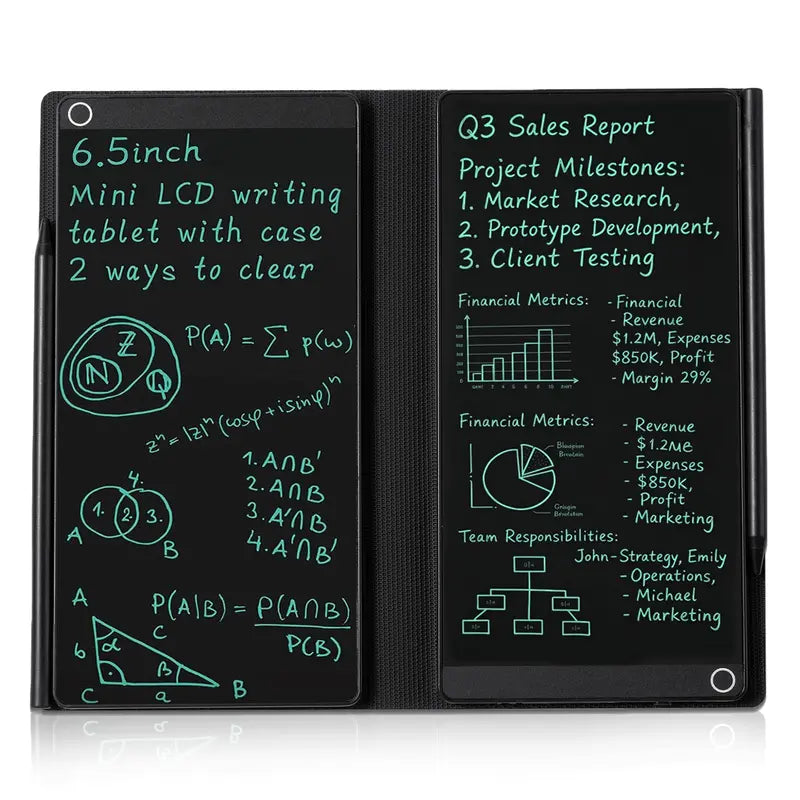 6.5inch
Mini LCD writing
tablet with case
2 ways to clear
Z
N
Q
P(A) = ∑ p(ω)
zⁿ = |z|ⁿ (cosφ + i sinφ)ⁿ
4.
1. 2. 3.
A
B
1. A∩B'
2. A∩B
3. A'∩B
4. A'∩B'
P(A|B) = P(A∩B)
P(B)
A
b α c
C β B
a
Q3 Sales Report
Project Milestones:
1. Market Research,
2. Prototype Development,
3. Client Testing
Financial Metrics:
- Financial
- Revenue
$1.2M, Expenses
$850K, Profit
- Margin 29%
Financial Metrics:
- Revenue
- $1.2ME
- Expenses
- $850K,
- Profit
- Marketing
Team Responsibilities:
John-Strategy, Emily
- Operations,
- Michael
- Marketing